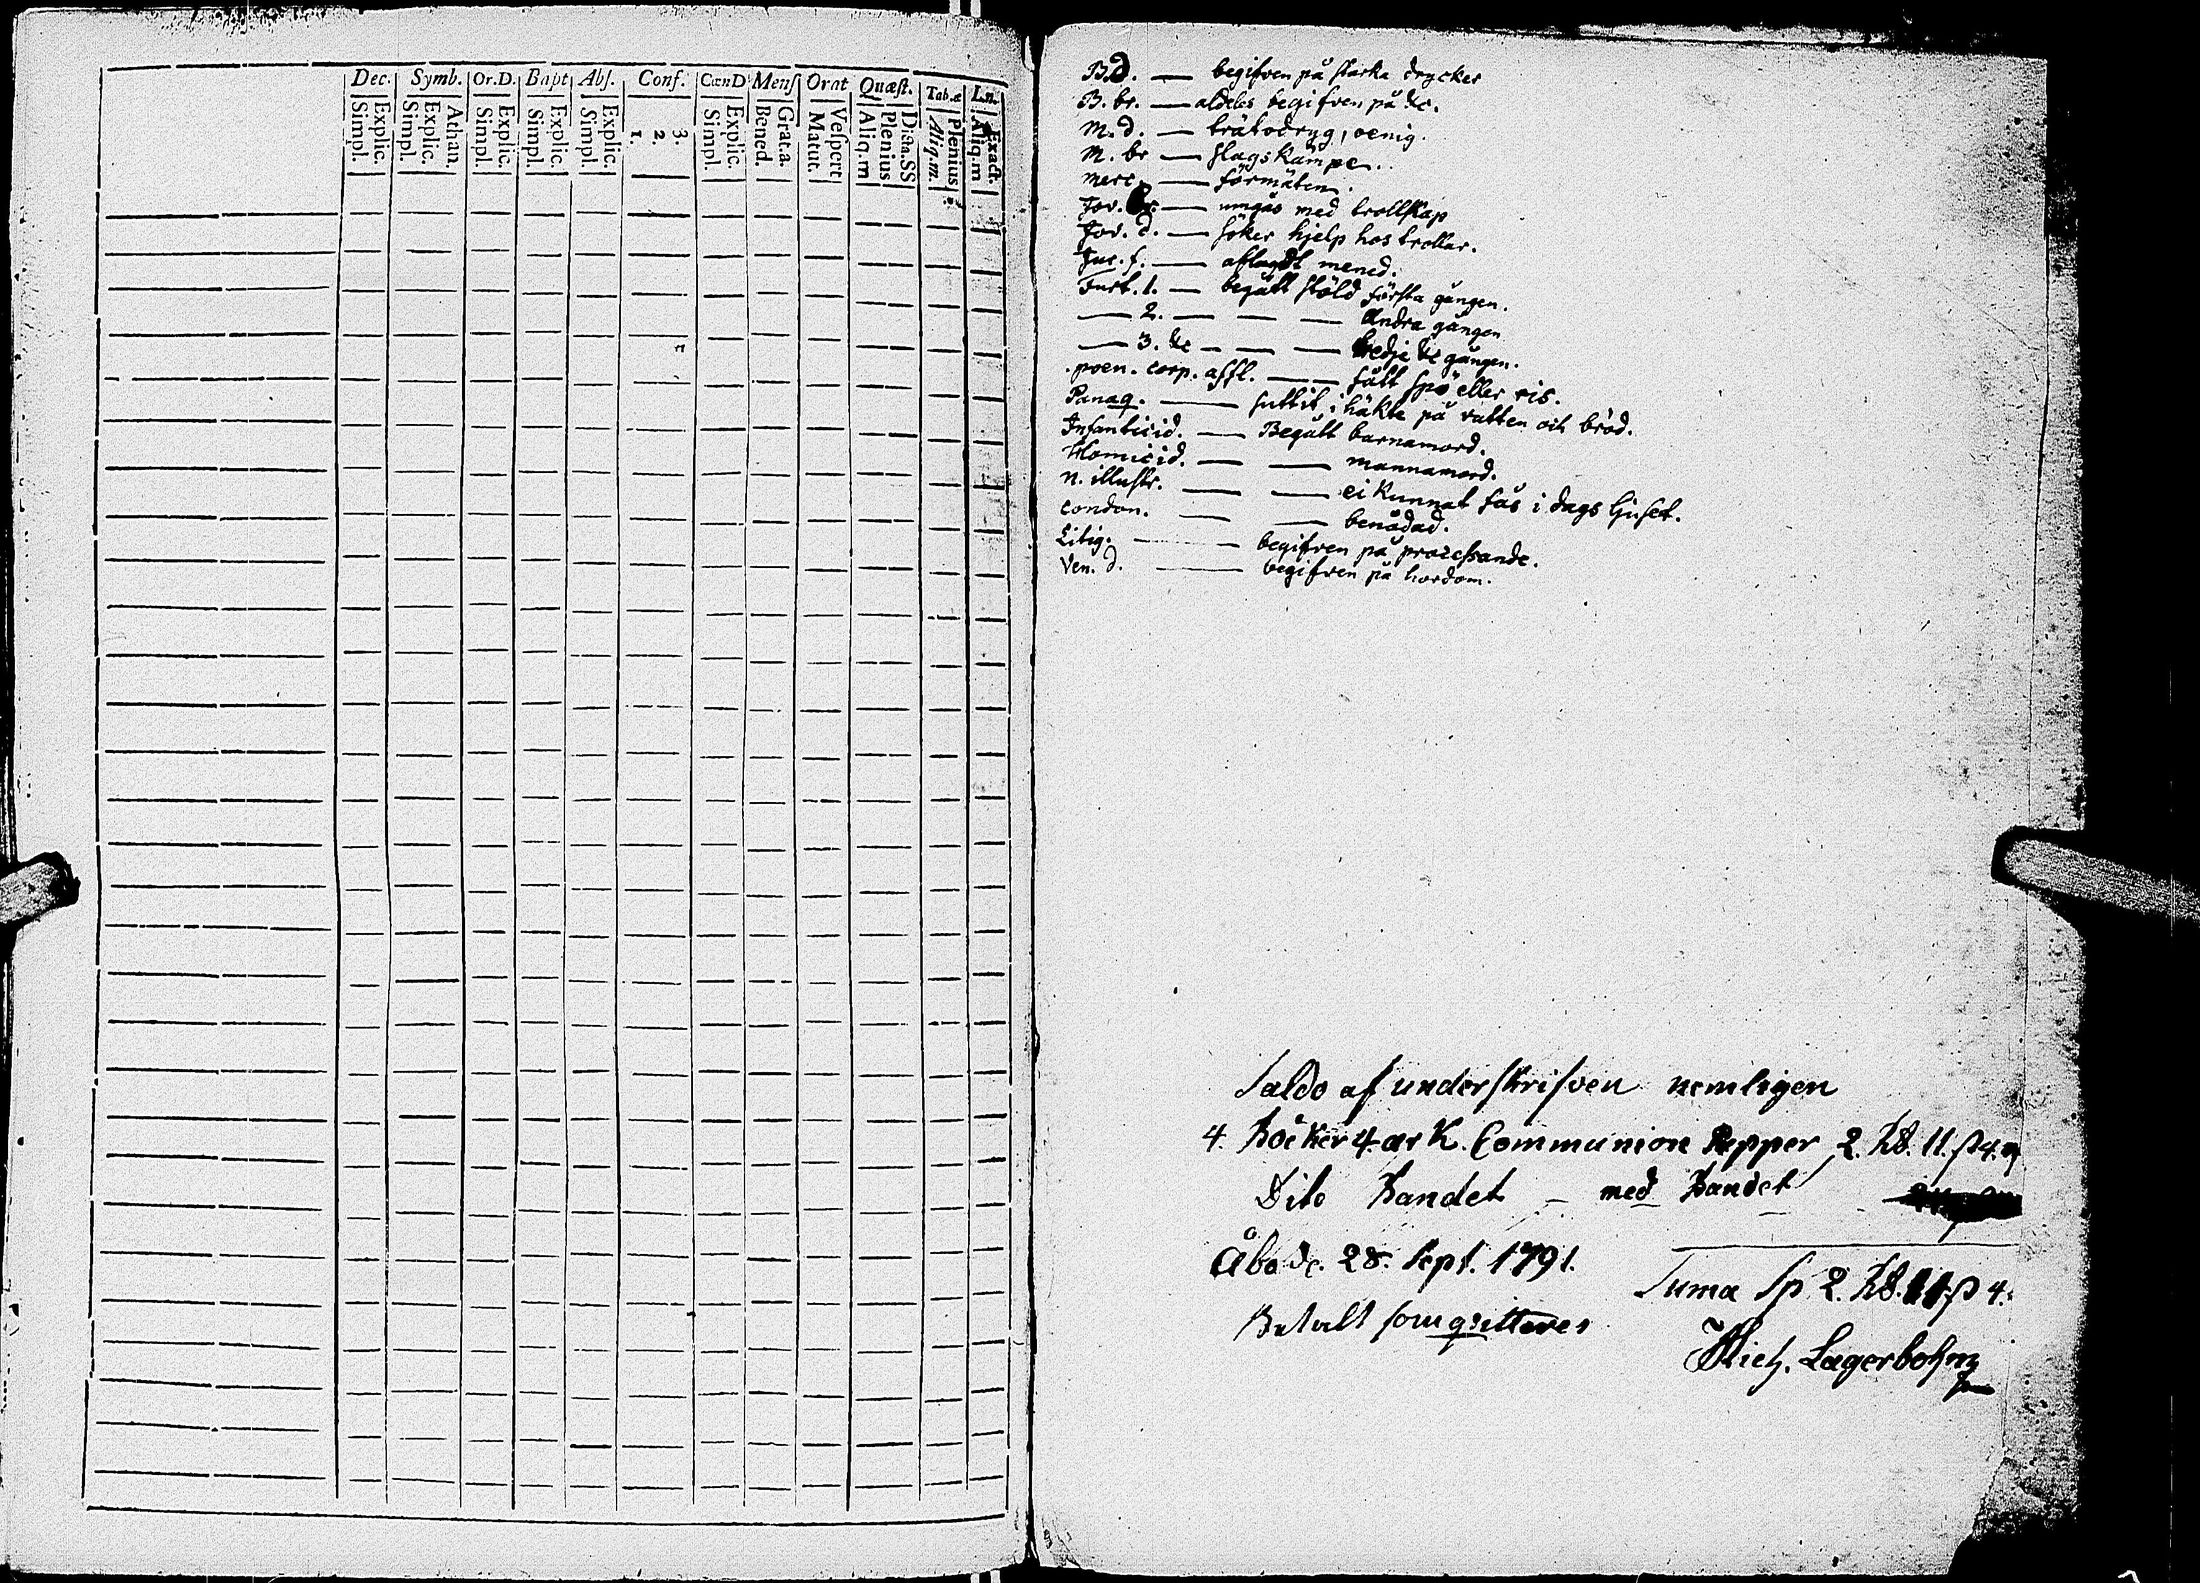 Dec. Symb. Or.D. Bapt Abs. Conf. CœnD Mens Orat Quæst. Tab.æ L.n.
Explic. Simpl. Athan. Explic. Simpl. Explic. Simpl. Explic. Simpl Explic. Simpl. 3. 2. 1. Explic. Simpl. Grat.a. Bened. Vespert Matut. Dicta.SS Plenius Aliq.m Plenius Aliq.m. Exact. Aliq.m
B.d. — begifven på starka drycker
B. br. — aldeles begifven på &c.
M. d. — trätodryg, oenig.
M. br — slagskämpe.
merc. — förmäten.
Jov. — umgås med trollskap
Jov. d. — söker hjelp hos trollar.
Jur. f. — aflagdt mened.
Furt. 1. — begått stöld första gången.
— 2. — — — andra gången
— 3. &c — — — tredje &c gången.
poen. corp. affl. — — fått spö eller ris.
Panaq. — suttit i häkte på vatten och bröd.
Infanticid. — Begått barnamord.
Homicid. — — mannamord.
n. illustr. — — ei kunnat fås i dags ljuset.
condon. — — benådad.
Litig. — begifven på processande.
Ven. d. — begifven på hordom.
Saldo af underskrifven nemligen
4. Böcker 4. ark. Communion Papper 2. Rd. 11. s 4.
Dito bandet — med bandet
Åbo de. 28. Sept. 1791.
Suma Sp 2. Rd. 11 s 4.
Betalt som qvitteres
Mich. Lagerbohm